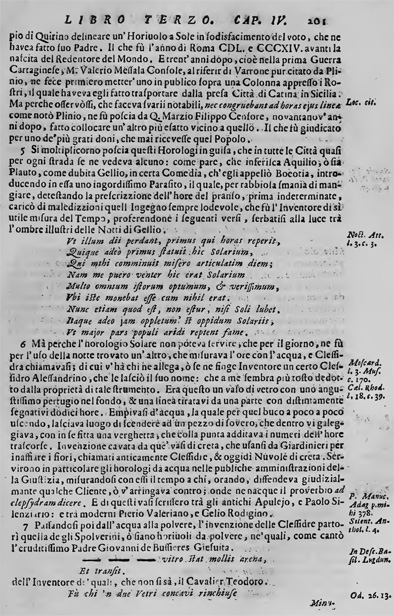 LIBRO TERZO. CAP. IV. 201
pio di Quirino delineare un' Horiuolo a Sole in sodisfacimento del voto, che ne
havea fatto suo Padre. Il che fù l'anno di Roma CDL. e CCCXIV. avanti la
nascita del Redentore del Mondo. E trent'anni dopo, cioè nella prima Guerra
Cartaginese, M. Valerio Messala Console, al riferir di Varrone pur citato da Pli-
nio, ne fece primiero metter'uno in publico sopra una Colonna appresso i Ro-
stri, il quale haveva egli fatto trasportare dalla presa Città di Catina in Sicilia.
Ma perche osservossi, che faceva svarii notabili, nec congruebant ad horas ejus lineæ
Loc. cit.
come notò Plinio, ne fù poscia da Q. Marzio Filippo Censore, novantanov'an-
ni dopo, fatto collocare un'altro più esatto vicino a quello. Il che fù giudicato
per uno de'più grati doni, che mai ricevesse quel Popolo.
5 Si moltiplicorno poscia questi Horologi in guisa, che in tutte le Città quasi
per ogni strada se ne vedeva alcuno: come pare, che inferisca Aquilio, ò sia
Plauto, come dubita Gellio, in certa Comedia, ch'egli appellò Boeotia, intro-
ducendo in essa uno ingordissimo Parasito, il quale, per rabbiosa smania di man-
giare, detestando la prescrizzione dell'hore del pranso, prima indeterminate,
caricò di maledizzioni quell'Ingegno sempre lodevole, che fù l'Inventore di sì
utile misura del Tempo, proferendone i seguenti versi, serbatisi alla luce trà
l'ombre illustri delle Notti di Gellio.
Vt illum dii perdant, primus qui horas reperit,
Noct. Att.
l. 3. c. 3.
Quique adeò primus statuit hic Solarium,
Qui mihi comminuit misero articulatim diem;
Nam me puero venter hic erat Solarium
Multo omnium istorum optumum, & verissimum,
Vbi iste monebat esse cum nihil erat.
Nunc etiam quod est, non estur, nisi Soli lubet.
Itaque adeo jam oppletum est oppidum Solariis,
Vt major pars populi aridi reptent fame.
6 Mà perche l'horologio Solare non poteva servire, che per il giorno, ne fù
per l'uso della notte trovato un'altro, che misurava l'ore con l'acqua, e Clessi-
dra chiamavasi; di cui v'hà chi ne allega, ò se ne finge Inventore un certo Cles-
sidro Alessandrino, che le lasciò il suo nome: che a me sembra più tosto dedot-
to dalla proprietà di tale strumento. Era questo un vaso di vetro con uno angu-
stissimo pertugio nel fondo, & una linea tirata da una parte con distintamente
segnativi dodici hore. Empivasi d'acqua, la quale per quel buco a poco a poco
uscendo, lasciava luogo di scendere ad un pezzo di sovero, che dentro vi galeg-
giava, con in se fitta una verghetta, che colla punta additava i numeri dell'hore
trascorse. Invenzione cavata da que' vasi di creta, che usansi da Giardinieri per
inaffiare i fiori, chiamati anticamente Clessidre, & oggidì Nuvole di creta. Ser-
virono in particolare gli horologi da acqua nelle publiche amministrazioni del-
la Giustizia, misurandosi con essi il tempo a chi, orando, diffendeva giudizial-
mente qualche Cliente, ò v'arringava contro; onde ne nacque il proverbio ad
clepsydram dicere. E di questi vasi scrissero trà gli antichi Apulejo, e Paolo Si-
lenziario: e trà moderni Pierio Valeriano, e Celio Rodigino.
7 Passandosi poi dall'acqua alla polvere, l'invenzione delle Clessidre parto-
rì quella de gli Spolverini, ò siano horiuoli da polvere, ne'quali, come cantò
l'eruditissimo Padre Giovanni de Bussieres Giesuita.
vitro stat mollis arena,
Et transit.
dell'Inventore de'quali, che non si sà, il Cavalier Teodoro.
Od. 26. 13.
Fù chi 'n due Vetri concavi rinchiuse
Minu-